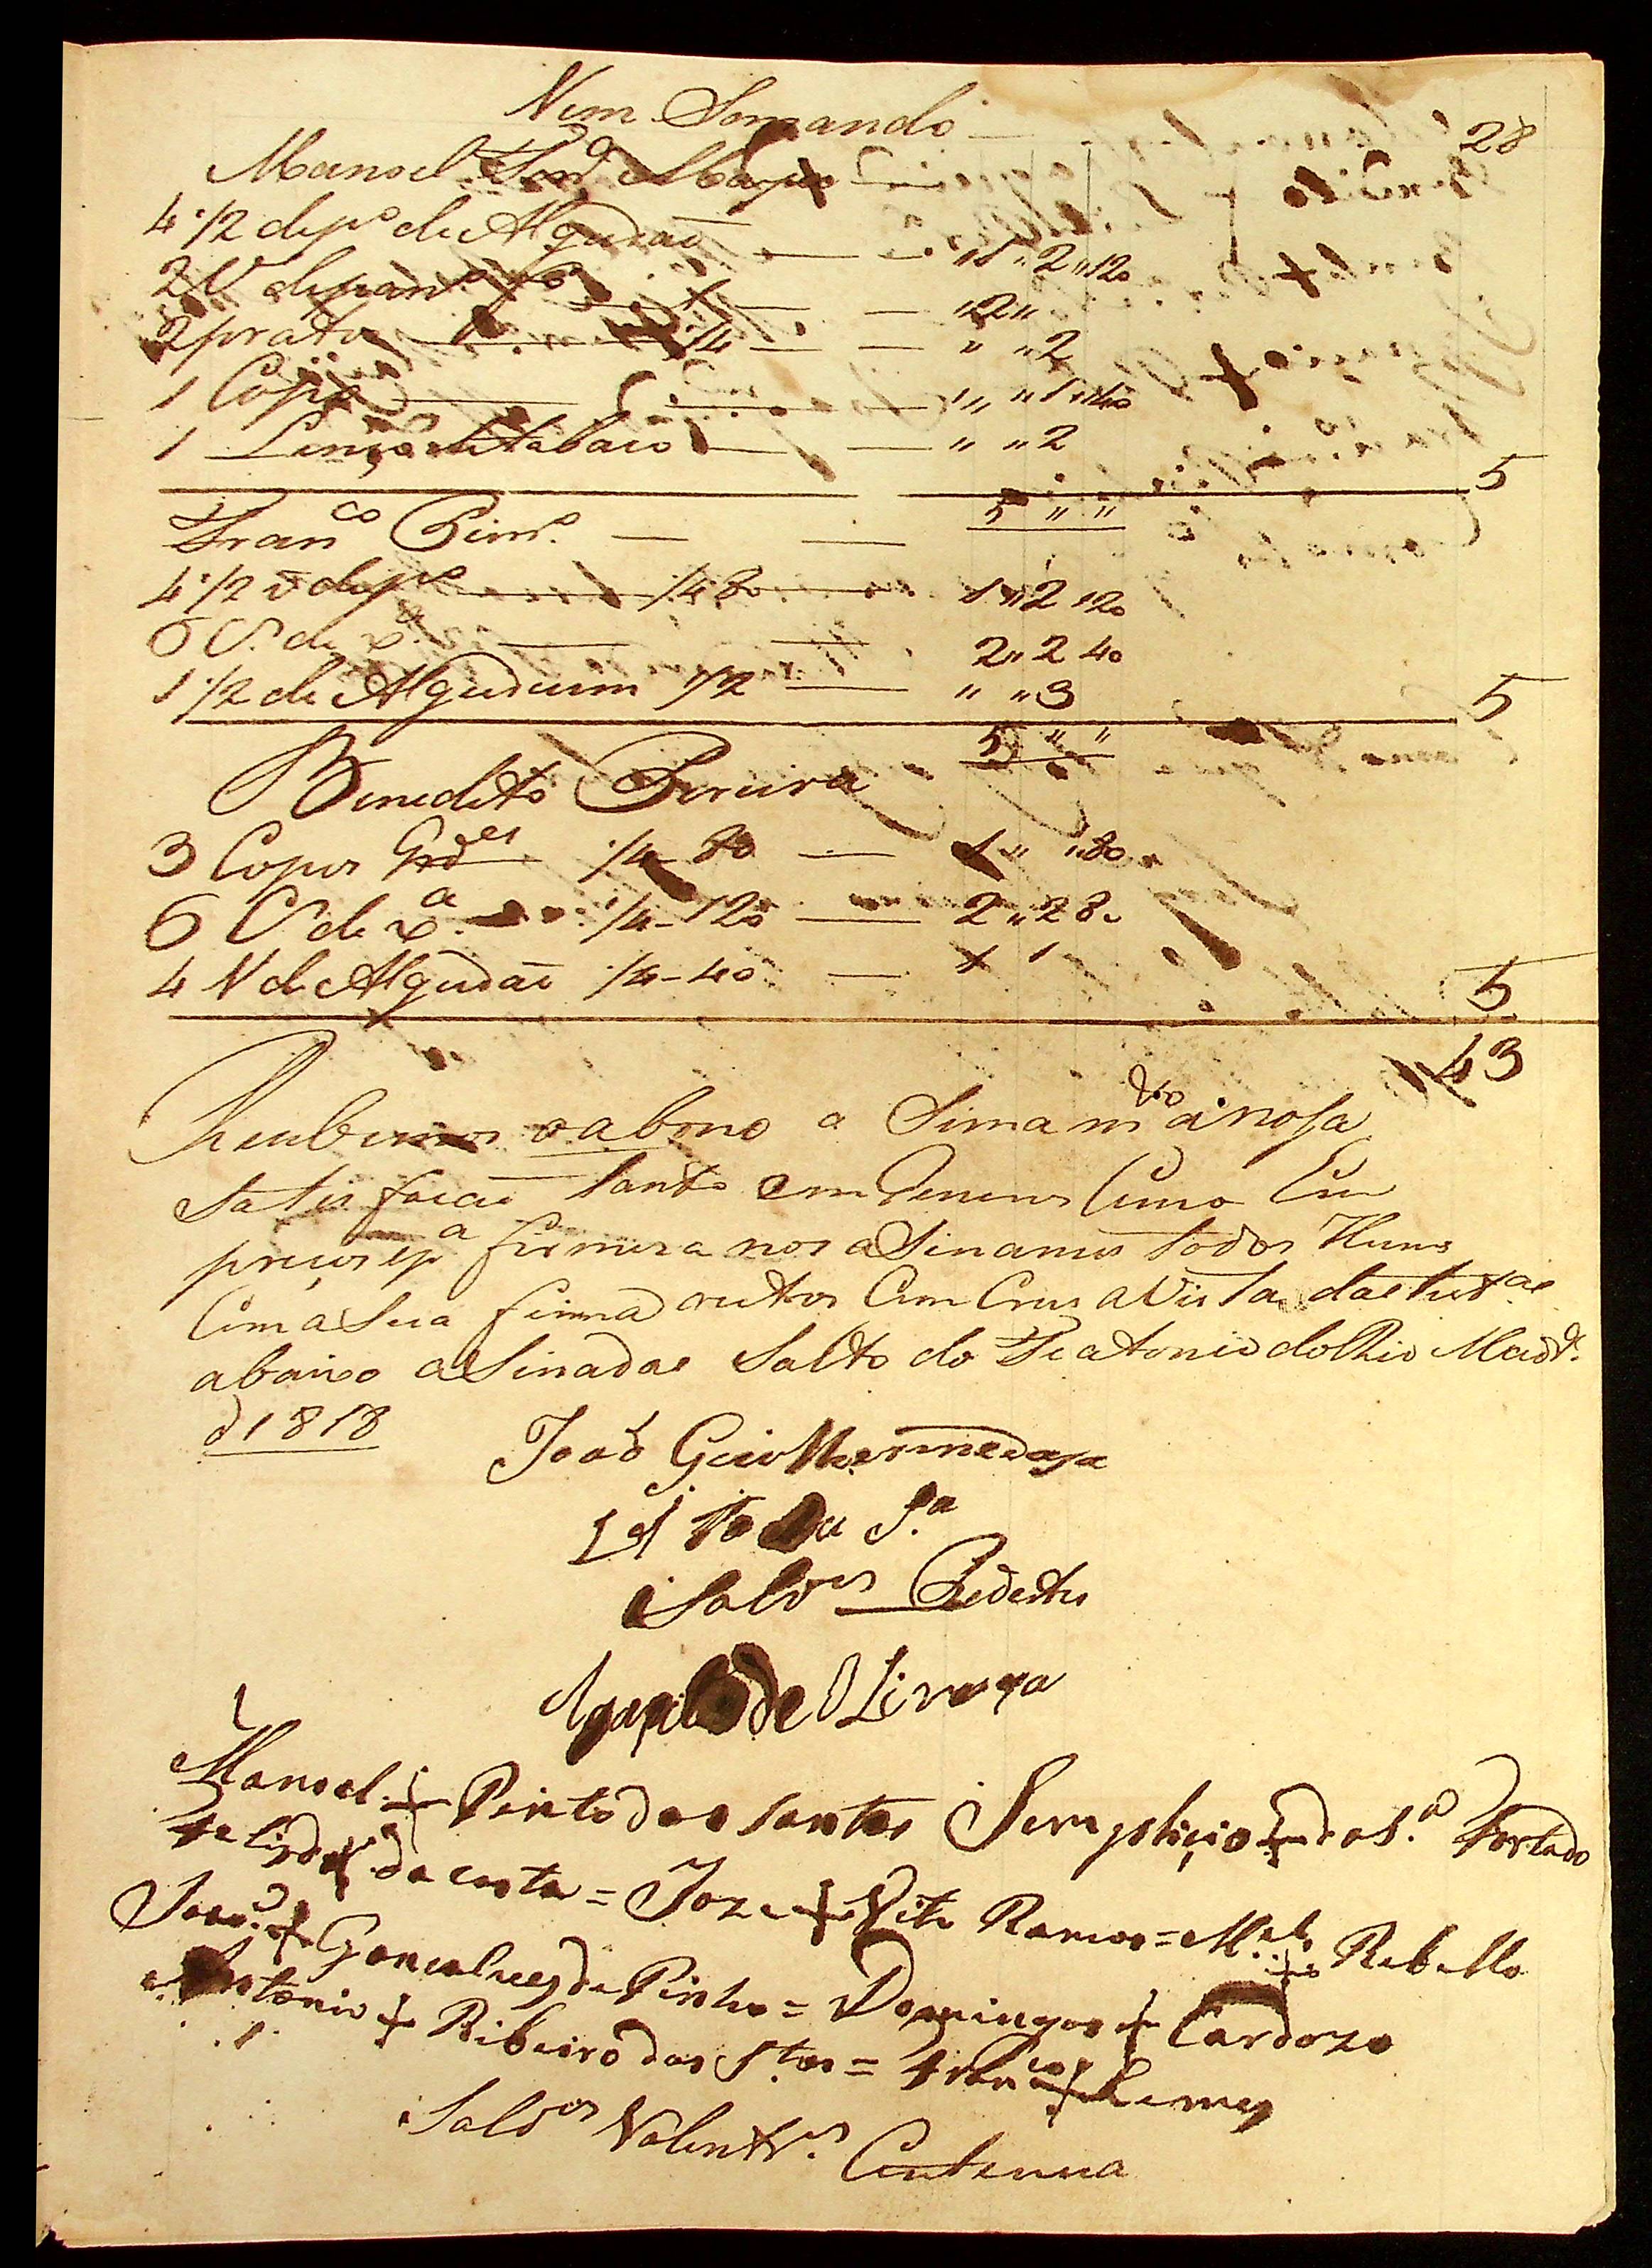 Vem Somando — 28
Manoel
4 1/2 de p.º de Algudaõ — — " 1 " 2 " 120
2 V de pan.º — " 2 "
2 prato 1/4 — — " " 2
1 Copo — — " " 1 " 40
1 Lenço de tabaco — — " " 2
5 " " 5
Fran.co Pinr.º — —
4 1/2 v de p.º — 1/480 — 1 " 2 120
6 C. de x.ª — — 2 " 2 40
1 1/2 de Algudum 1/2 — " " 3 5
5 " "
Benedito Pereira
3 Copos Grd.es 1/4 — 80 — 1 " " 80
6 C. de x.ª — 1/4 — 120 — 2 " 2 80
4 V de Algudaõ 1/4 — 40 — 1 1 5
43
Recubemos o abono a Sima m.to a nosa
Satisfacaõ tanto em Generos Como Em
preços e p.a firmeza nos aSinamos todos Huns
Com a Sua firma outros Com Crus a Vista das test.as
abaixo aSinadas Salto do Teatonio do Rio Mad.ra
d 1818
Joaõ Guilherme da
da S.a
Sold.os Pedestres
de OLiveira
Manoel + Pinto dos Santos Semplicio + da S.a Fortado
da Costa = Joze + Vito Ramos = M.el + Rebello
Joaq.m + Goncalves de Pinho = Domingos + Cardozo
Antonio + Ribeiro dos S.tos = Fran.co + Lemes
Sold.os Volentr.os Centenna